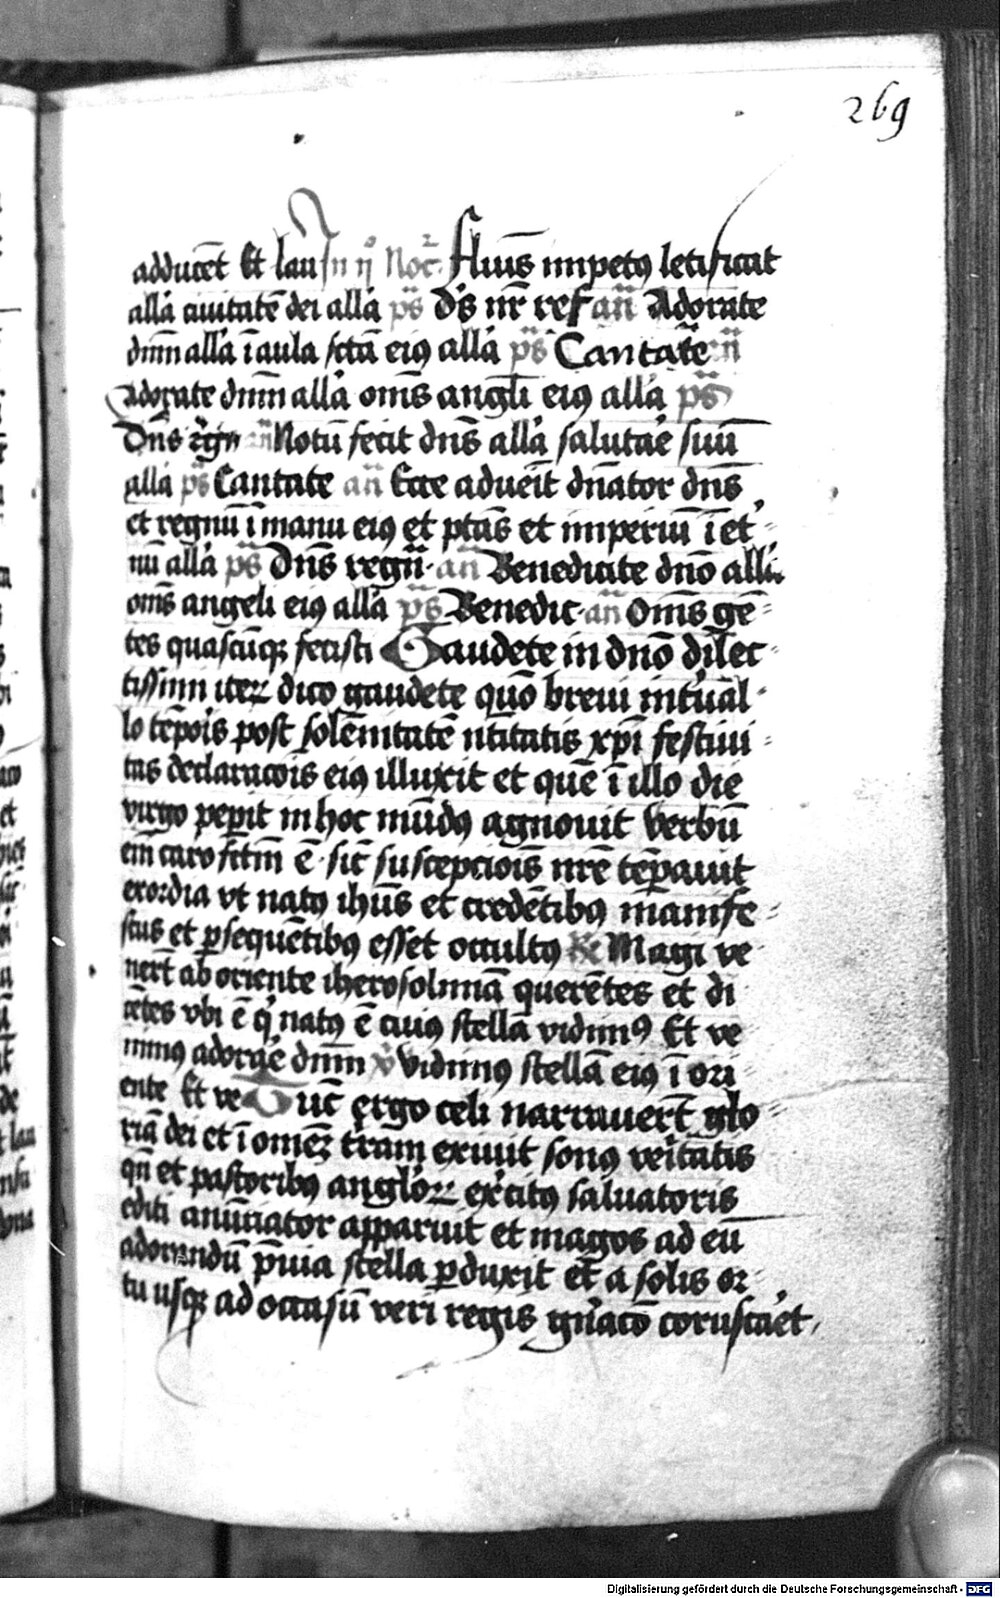 269
adducēt Et lau In ij Noc̄. Fluīs impetꝰ letificat
allā ciuitatē dei allā ps̄ Ds̄ nr̄ ref an̄ Adorate
dnm̄ allā ī aula sctā eiꝰ allā ps̄ Cantate an̄
adorate dnm̄ allā oms̄ angl̄i eiꝰ allā ps̄
Dns̄ regn̄ an̄ Notū fecit dns̄ allā salutae suū
allā ps̄ Cantate an̄ Ecce adueīt dn̄ator dns̄
et regnū ī manu eiꝰ et ptās et imperiū ī et⸗
nū allā ps̄ Dns̄ regn̄. an̄ Benedicite dnō allā
oms̄ angeli eiꝰ allā ps̄ Benedic. an̄ Oms̄ gē⸗
tes quascūqꝫ fecisti Gaudete in dnō dilec⸗
tissimi iteꝝ dico gaudete quō breui int̄ual⸗
lo tēpois post solēnitatē n̄titatis xp̄i festiui⸗
tas declaracōis eiꝰ illuxit et quē ī illo die
virgo peperit in hoc mūdꝰ agnouit Verbū
em̄ caro fctm̄ ē. sic̄ suscepciois̄ nrē tēpauit
exordia vt natꝰ ihūs et credētibꝰ manife⸗
stus et ꝑsequētibꝰ esset occultꝰ R̄ Magi ve
nert̄ ab oriente iherosolimā querētes et di
cētes vbi ē q̄ natꝰ ē cuiꝰ stellā vidimꝰ Et ve
nimꝰ adorae dnm̄ v̄ Vidimꝰ stellā eiꝰ ī ori
ente Et ve Tuc̄ ergo celi narrauert̄ glo⸗
riā dei et ī omēꝫ tram exiuit sonꝰ veritatis
qn̄ et pastoribꝰ anglōꝝ ex̄citꝰ saluatoris
editi anūciator apparuit et magos ad eū
adorandū p̄uia stella ꝑduxit et a solis or⸗
tu usqꝫ ad occasū veri regis gn̄acō coruscaet
Digitalisierung gefördert durch die Deutsche Forschungsgemeinschaft - DFG